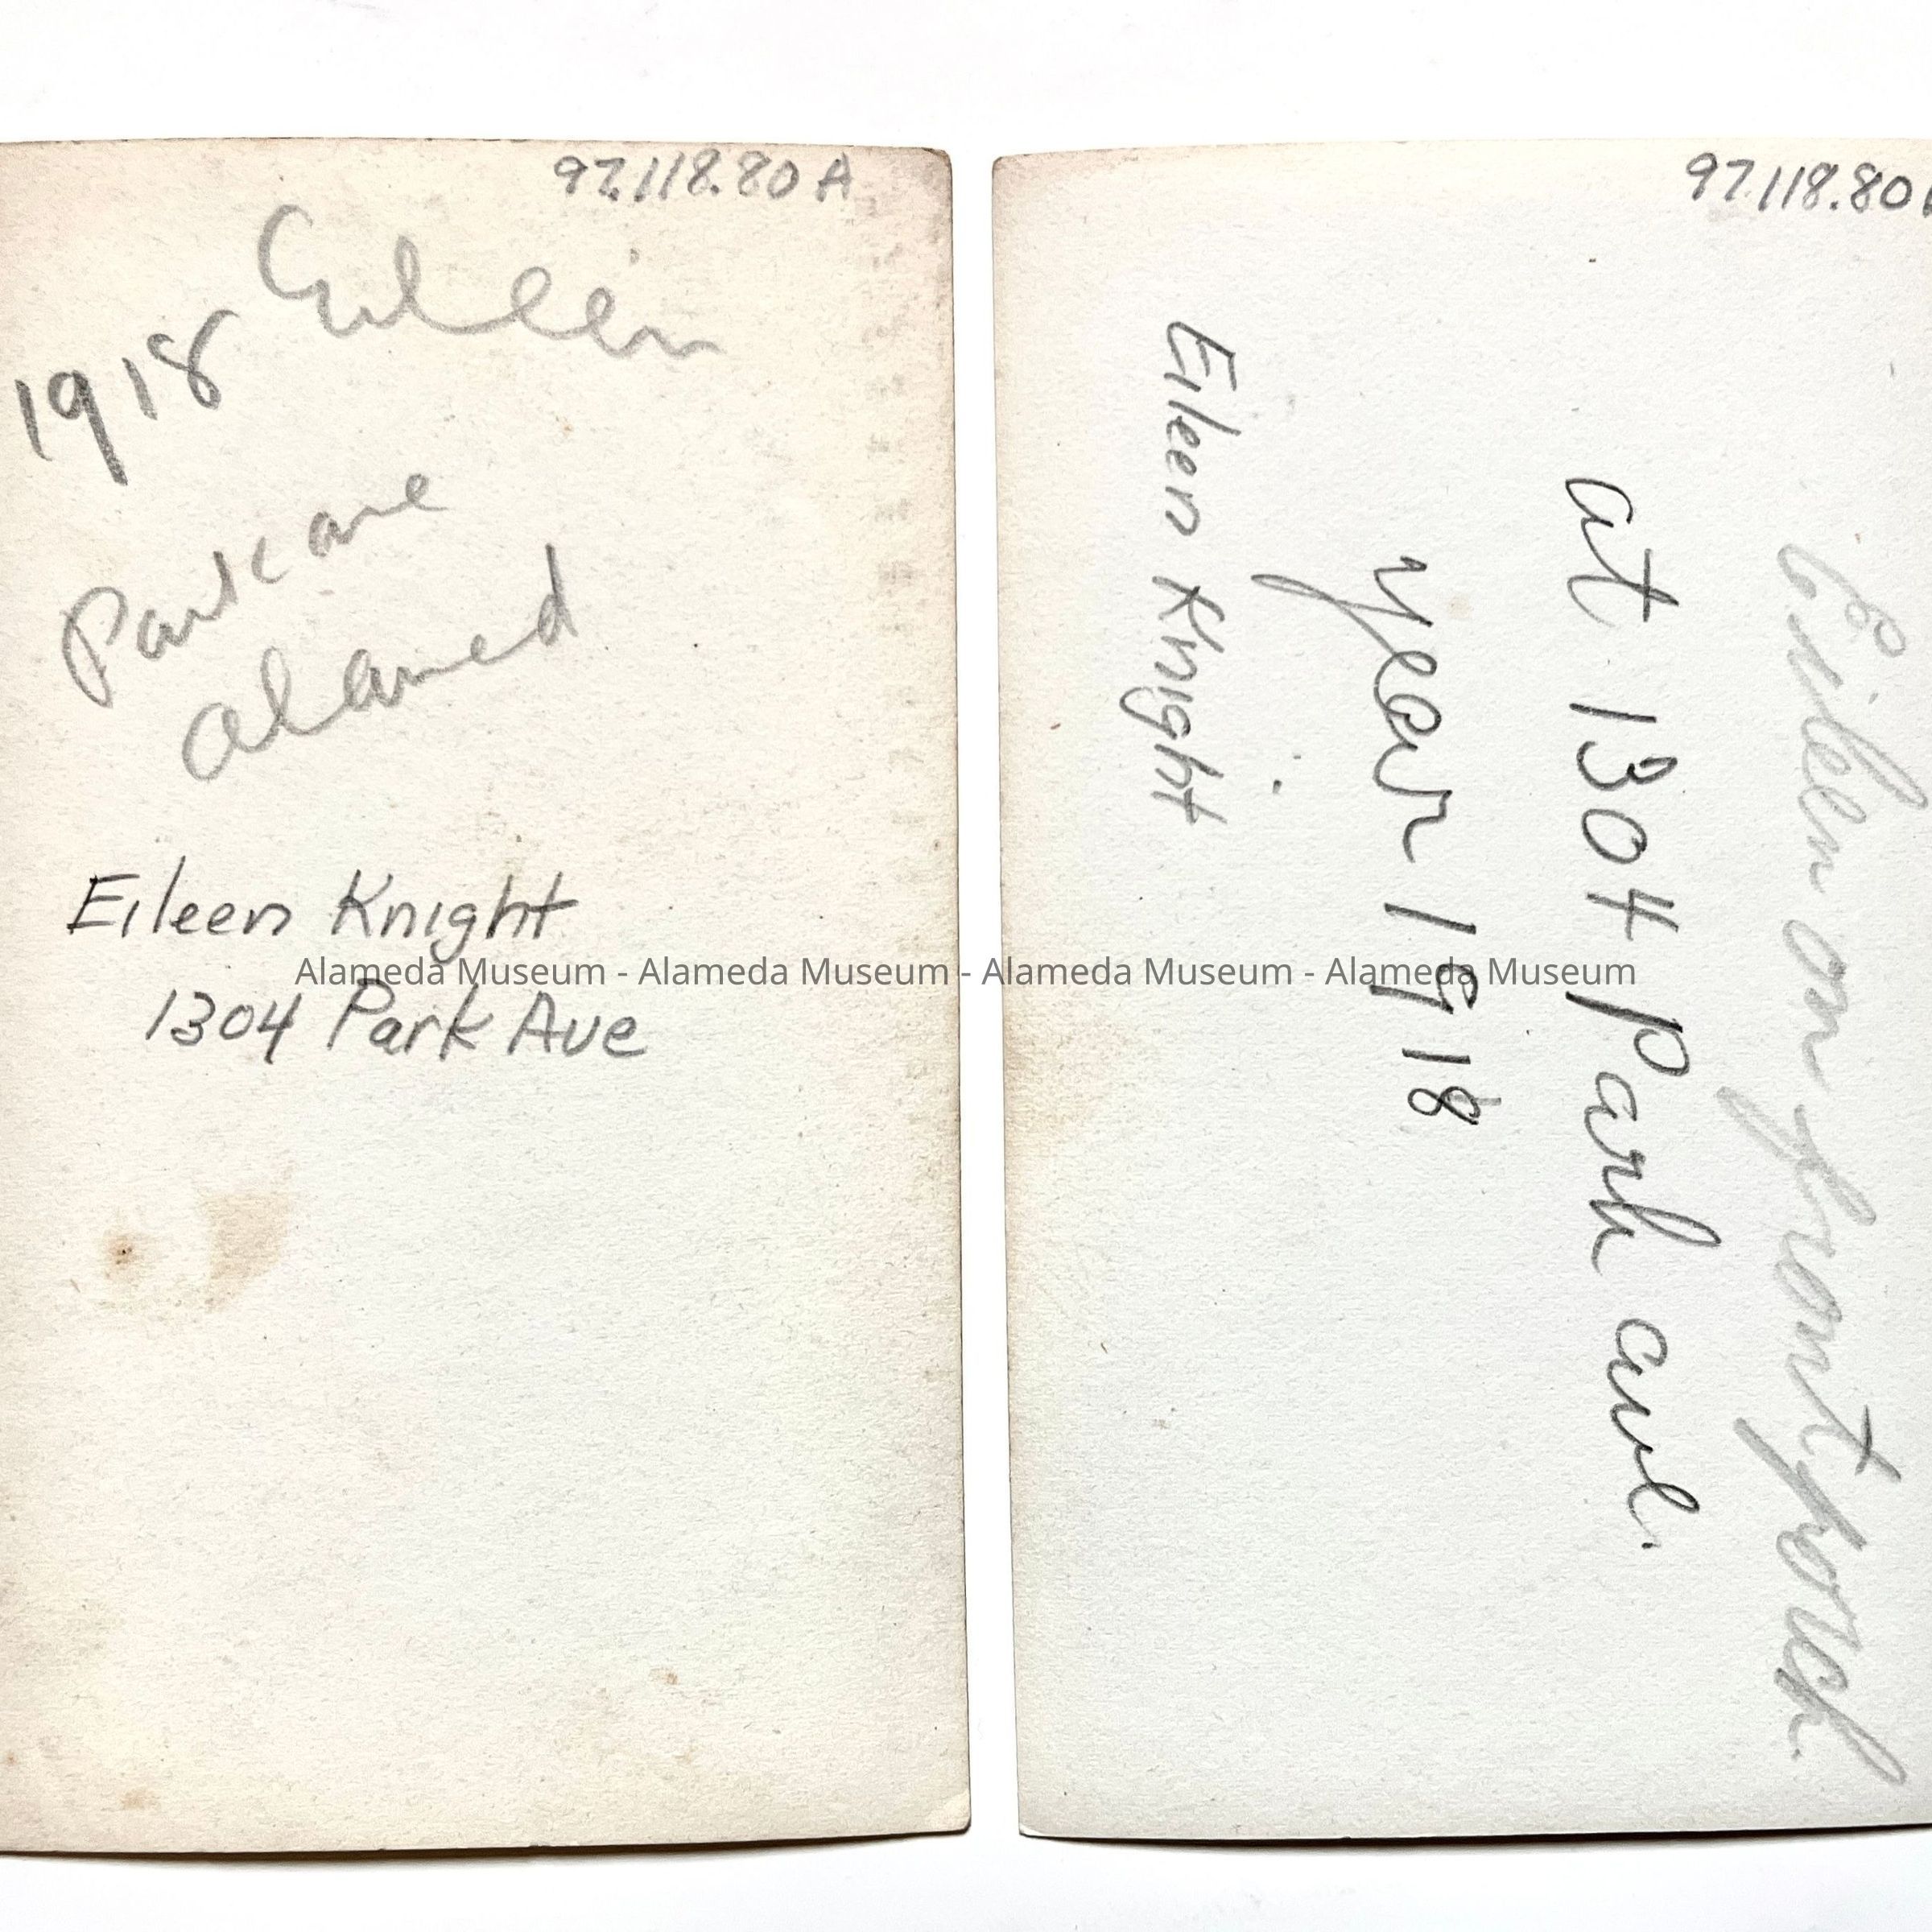 97.118.80 A
Eileen
1918
Park ave
alamed
Eileen Knight
1304 Park Ave
97.118.80
Eileen on front porch
at 1304 Park ave.
year 1918
Eileen Knight
Alameda Museum - Alameda Museum - Alameda Museum - Alameda Museum